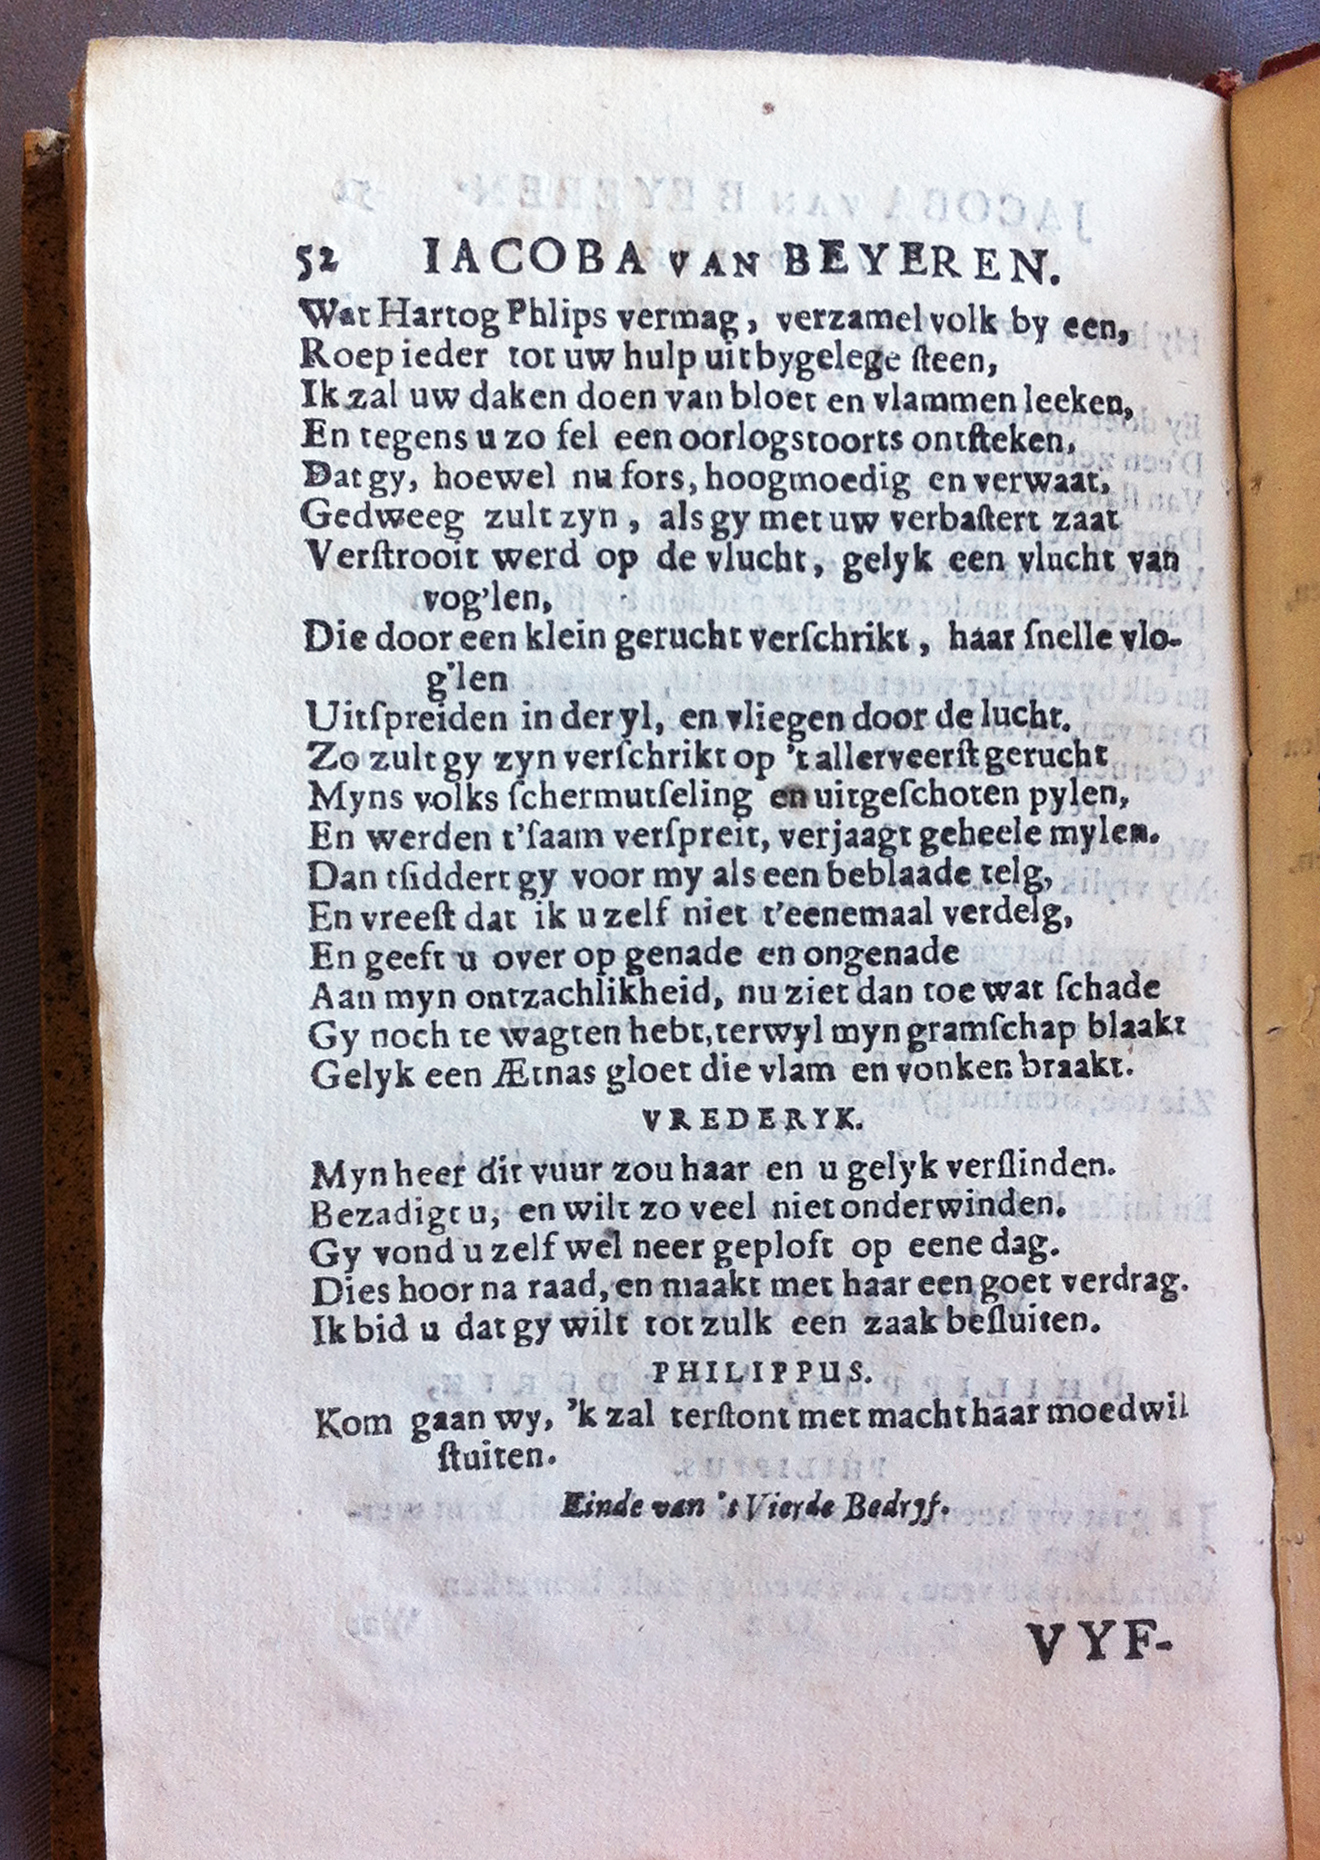 52 IACOBA VAN BEYEREN.
Wat Hartog Phlips vermag, verzamel volk by een,
Roep ieder tot uw hulp uit bygelege ſteen,
Ik zal uw daken doen van bloet en vlammen leeken,
En tegens u zo fel een oorlogstoorts ontſteken,
Dat gy, hoewel nu fors, hoogmoedig en verwaat,
Gedweeg zult zyn, als gy met uw verbaſtert zaat
Verſtrooit werd op de vlucht, gelyk een vlucht van
vog'len,
Die door een klein gerucht verſchrikt, haar ſnelle vlo-
g'len
Uitſpreiden in der yl, en vliegen door de lucht.
Zo zult gy zyn verſchrikt op 't allerveerſt gerucht
Myns volks ſchermutſeling en uitgeſchoten pylen,
En werden t'ſaam verſpreit, verjaagt geheele mylen.
Dan tſiddert gy voor my als een beblaade telg,
En vreeſt dat ik u zelf niet t'eenemaal verdelg,
En geeft u over op genade en ongenade
Aan myn ontzachlikheid, nu ziet dan toe wat ſchade
Gy noch te wagten hebt, terwyl myn gramſchap blaakt
Gelyk een Ætnas gloet die vlam en vonken braakt.
VREDERYK.
Myn heer dit vuur zou haar en u gelyk verſlinden.
Bezadigt u, en wilt zo veel niet onderwinden.
Gy vond u zelf wel neer geploft op eene dag.
Dies hoor na raad, en maakt met haar een goet verdrag.
Ik bid u dat gy wilt tot zulk een zaak beſluiten.
PHILIPPUS.
Kom gaan wy, 'k zal terſtont met macht haar moedwil
ſtuiten.
Einde van 't Vierde Bedryf.
VYF-